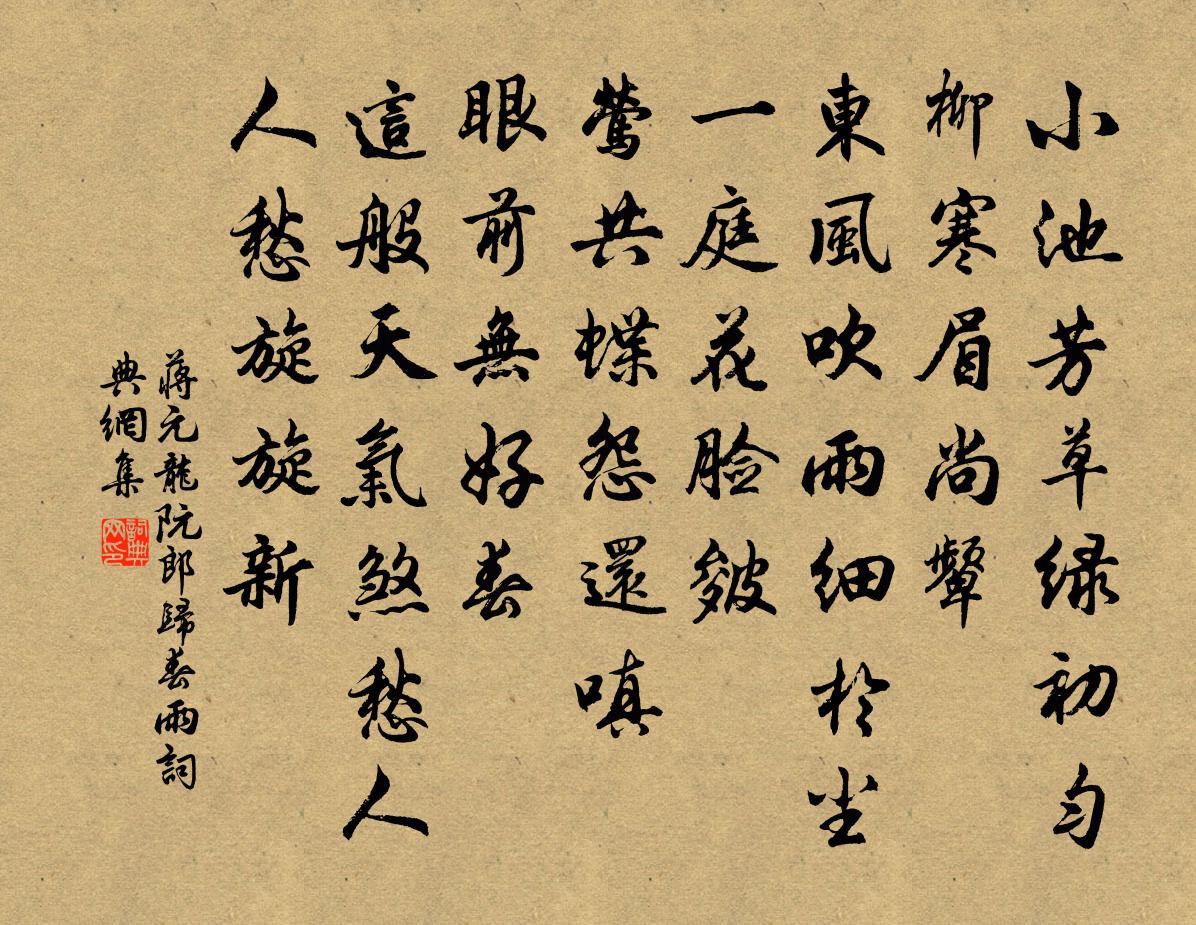 小池芳草綠初勻
柳寒眉尚顰
東風吹雨細於塵
一庭花臉皴
鶯共蝶怨還嗔
眼前無好春
這般天氣煞愁人
人愁旋旋新
蔣元龍阮郎歸春雨詞
典網集
詞典
网印